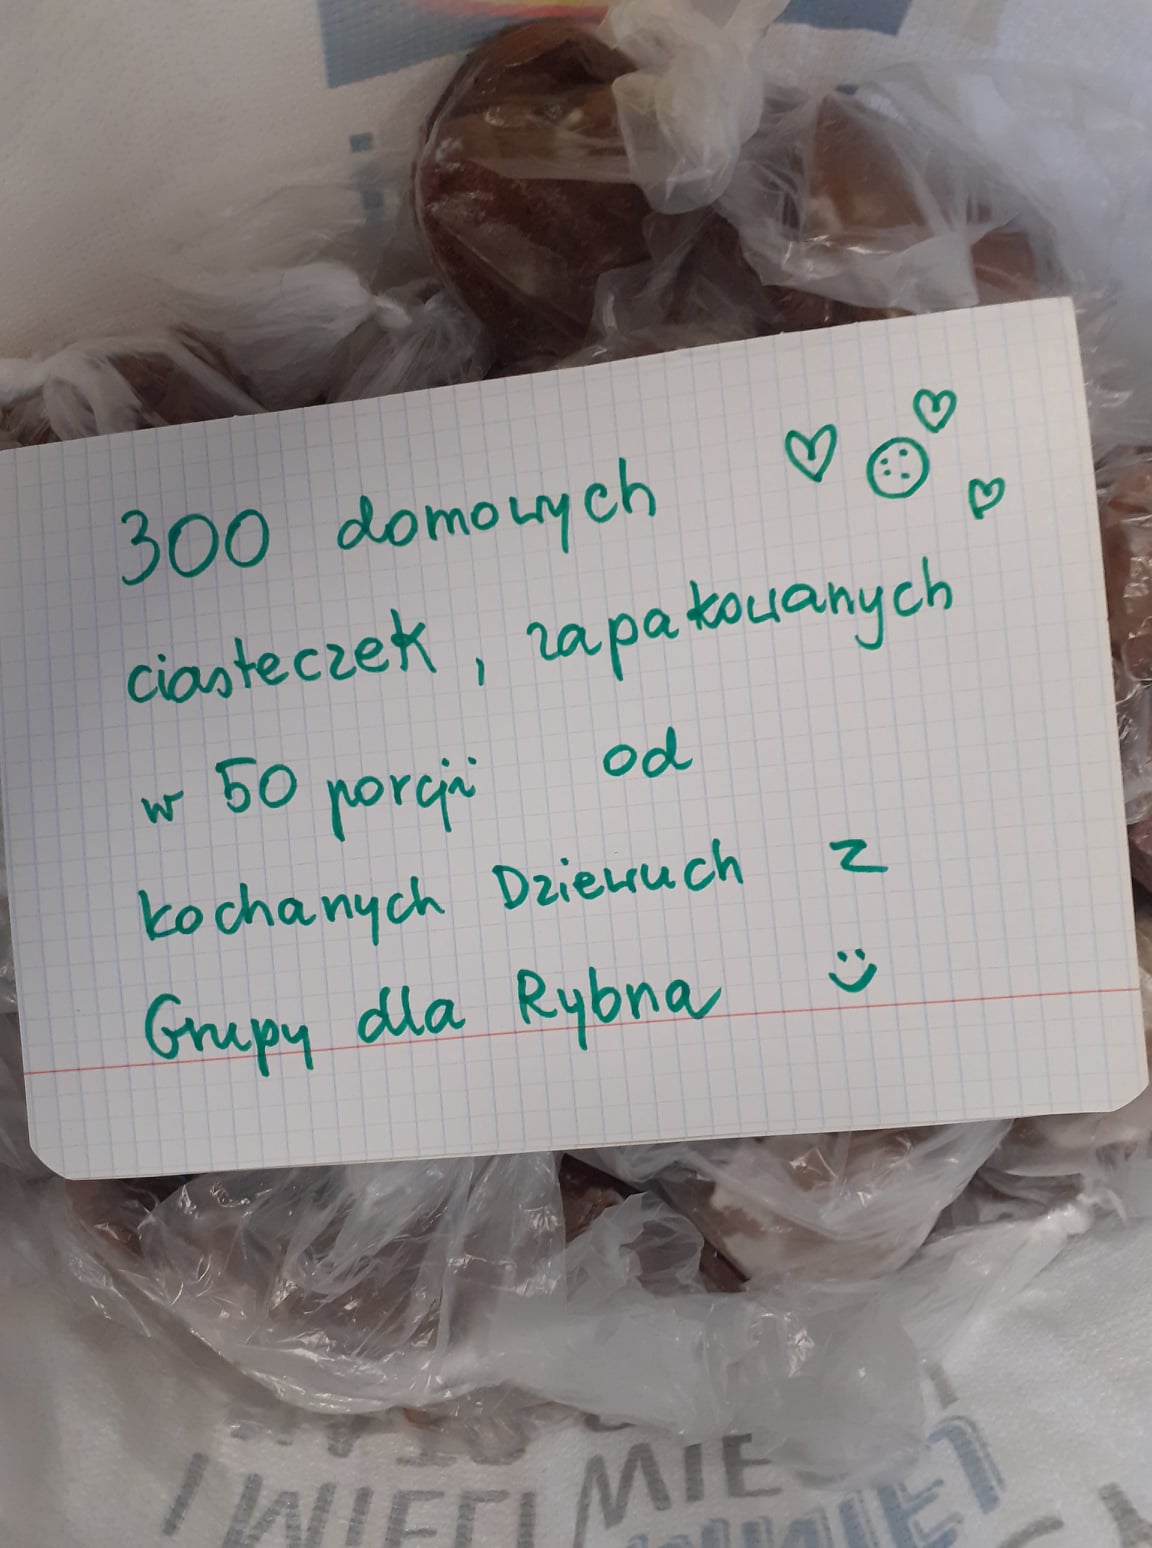 300 domowych
ciasteczek, zapakowanych
w 50 porcji od
kochanych Dziewuch z
Grupy dla Rybna
MIE